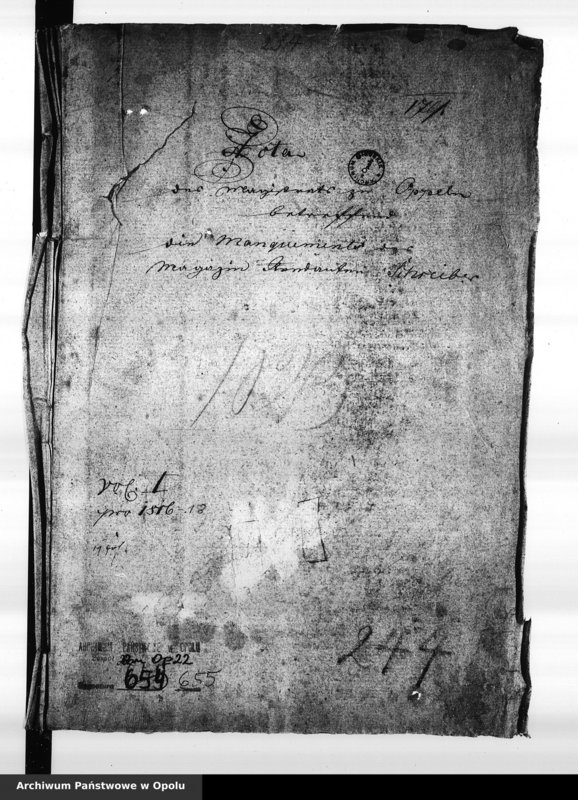 244
Acta
des Magistrats zu Oppeln
betreffend
die Manquements des
Magazin Rendanten Schreiber
1023
Vol. I
pro 1806-13
ARCHIWUM PAŃSTWOWE w OPOLU
Op 22
659 655
244
Archiwum Państwowe w Opolu